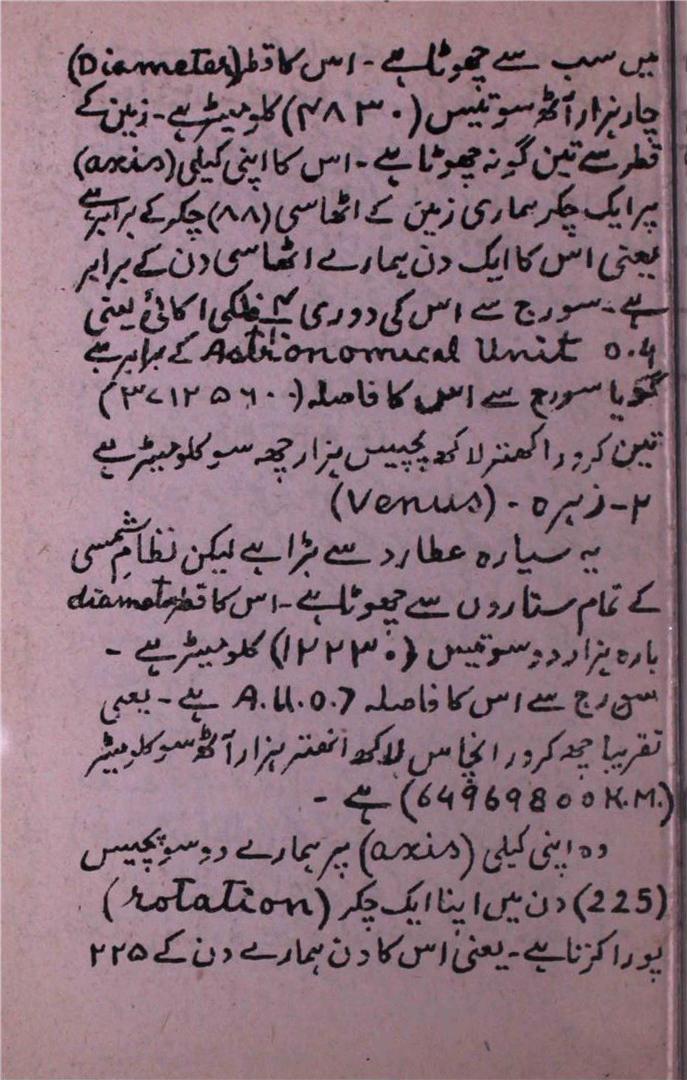 میں سب سے چھوٹا ہے - اس کا قطر (Diameter)
چار ہزار آٹھ سو تیس (۴۸۳۰) کلو میٹر ہے - زمین کے
قطر سے تین گونہ چھوٹا ہے - اس کا اپنی کیلی (axis)
پر ایک چکر ہماری زمین کے اٹھاسی (۸۸) چکر کے برابر ہے
یعنی اس کا ایک دن ہمارے اٹھاسی دن کے برابر
ہے - سورج سے اس کی دوری فلکی اکائی یعنی
0.4 Astrionomical Unit کے برابر ہے
گویا سورج سے اس کا فاصلہ (۳۷۱۲۵۶۰۰)
تین کرور اکھتر لاکھ پچیس ہزار چھ سو کلو میٹر ہے
۲ - زہرہ - (Venus)
یہ سیارہ عطارد سے بڑا ہے لیکن نظام شمسی
کے تمام ستاروں سے چھوٹا ہے - اس کا قطر diameter
بارہ ہزار دو سو تیس (۱۲۲۳۰) کلو میٹر ہے -
سورج سے اس کا فاصلہ A.U.0.7 ہے - یعنی
تقریبا چھ کرور انچاس لاکھ انھتر ہزار آٹھ سو کلو میٹر
(64969800 K.M.) ہے -
وہ اپنی کیلی (axis) پر ہمارے دو سو پچیس
(225) دن میں اپنا ایک چکر (rotation)
پورا کرتا ہے - یعنی اس کا دن ہمارے دن کے ۲۲۵